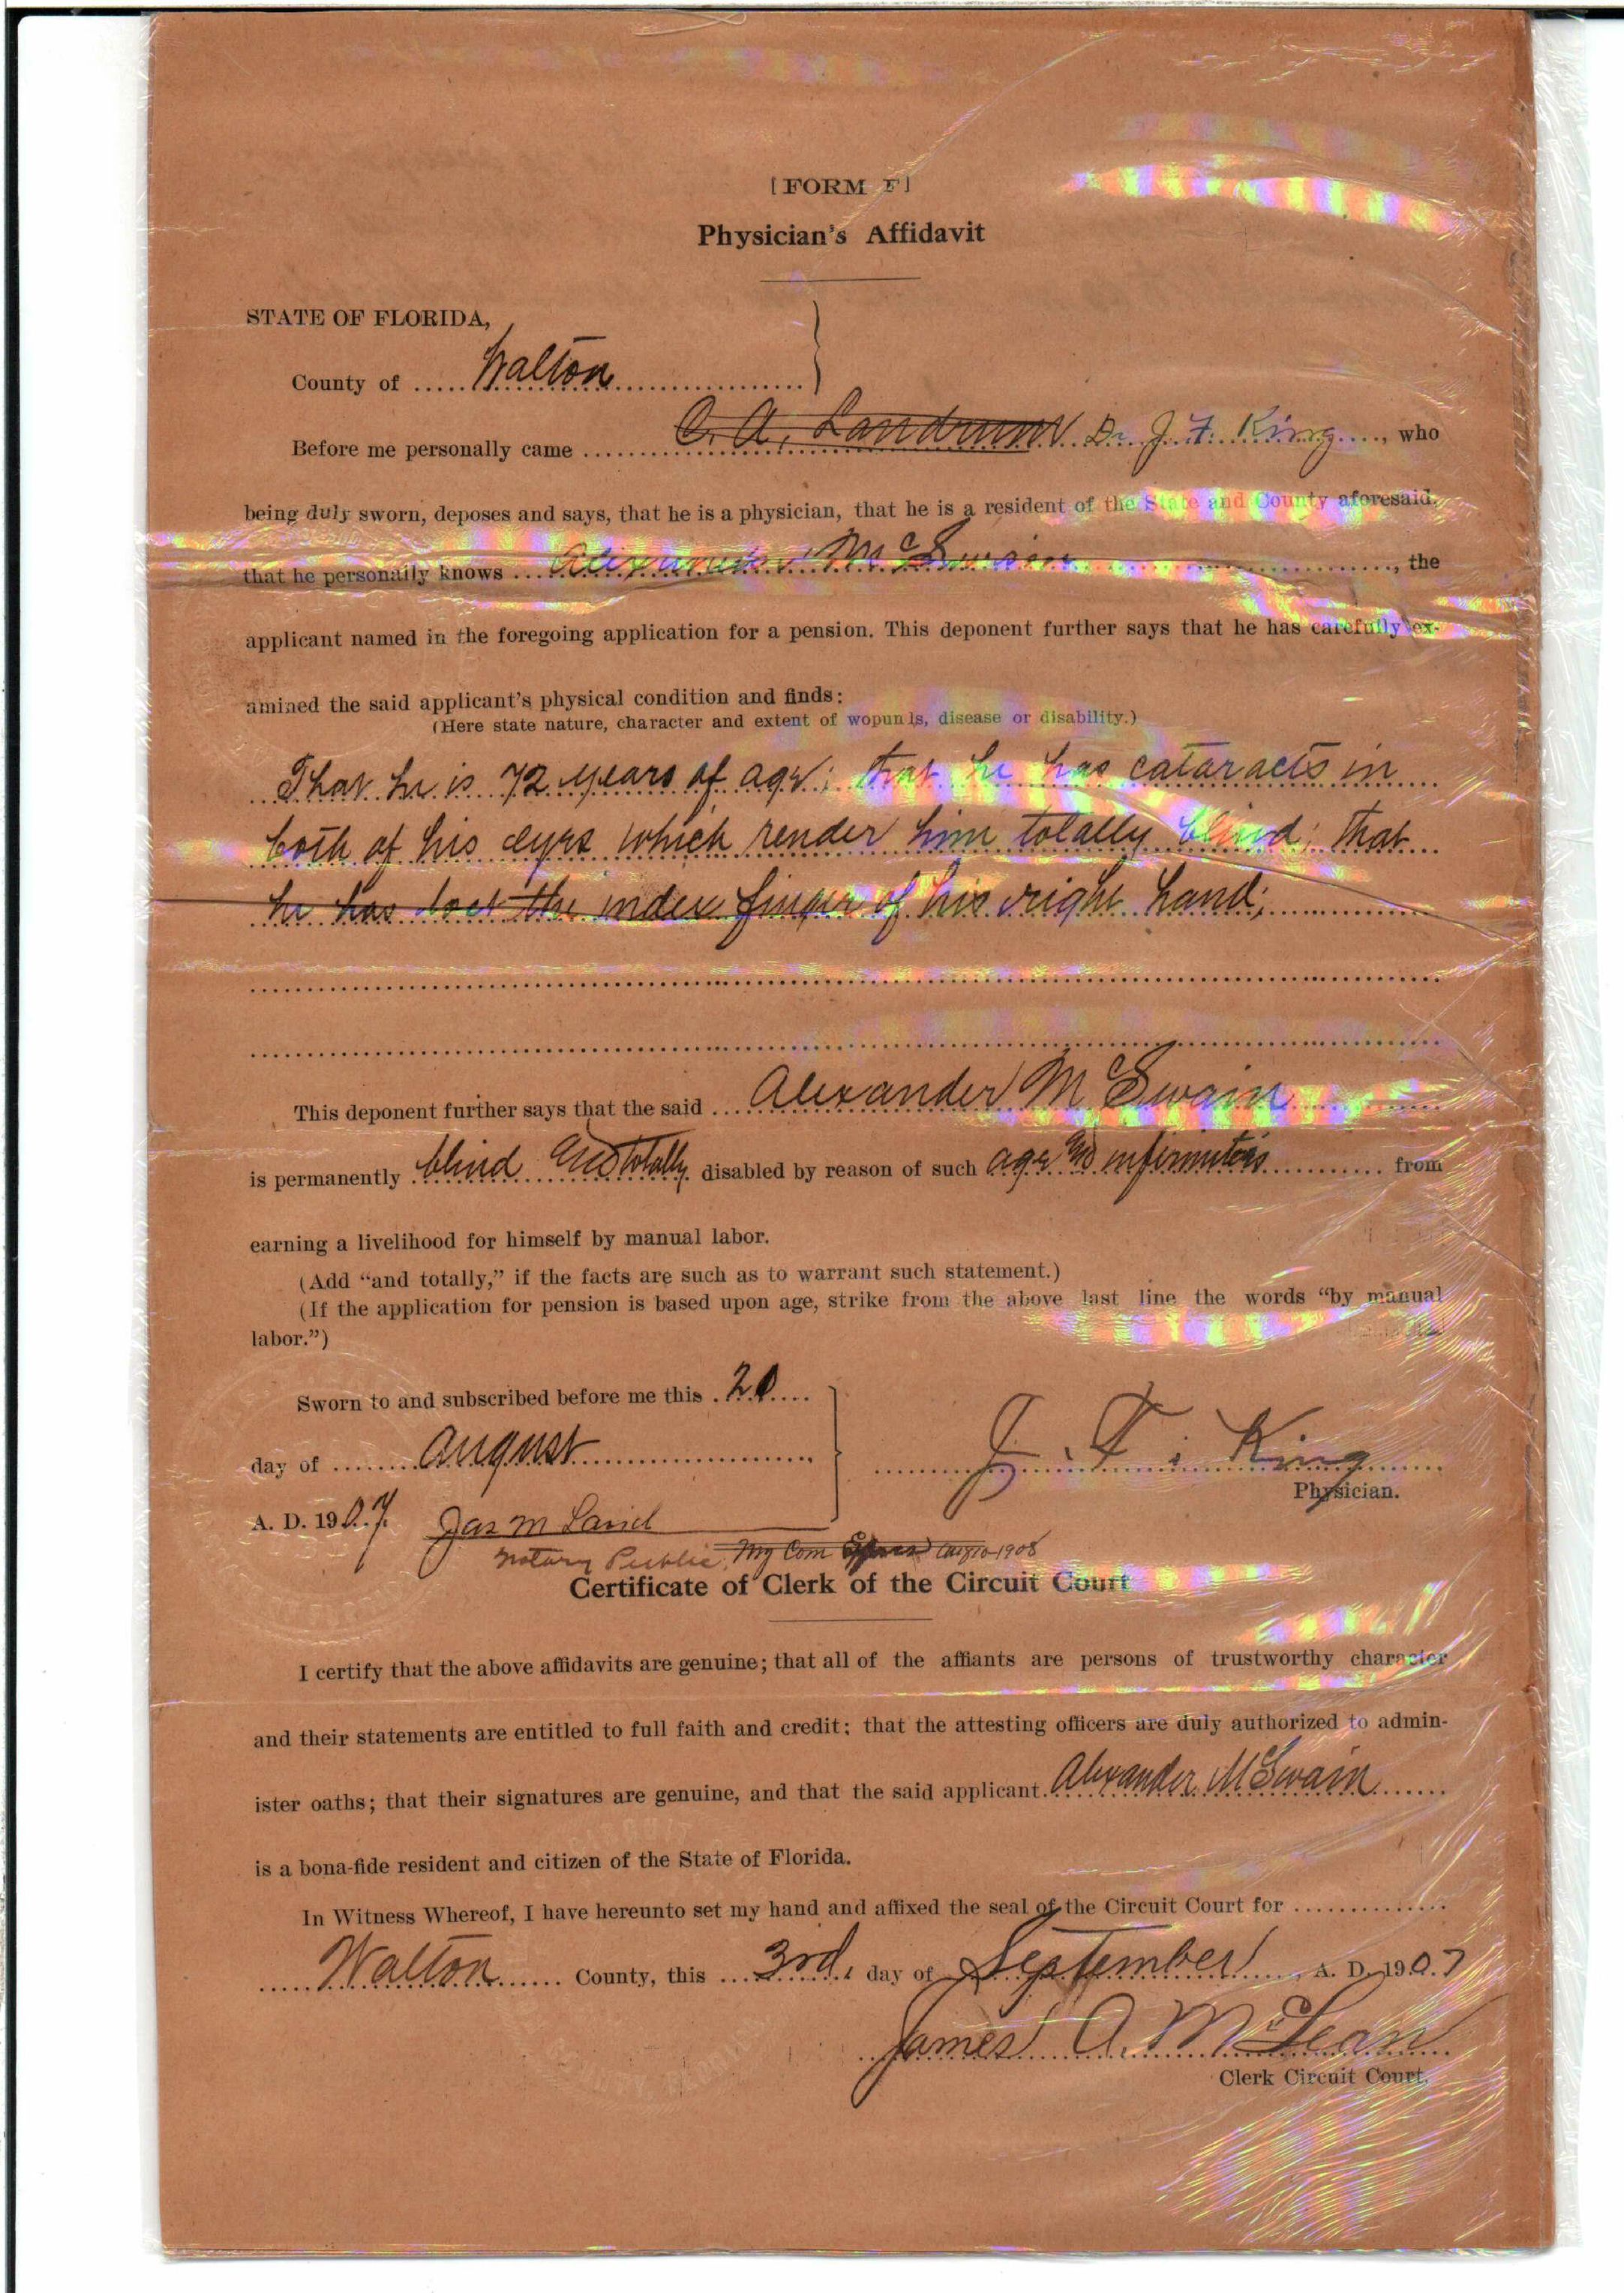 [FORM F]
Physician's Affidavit
STATE OF FLORIDA,
County of ..... Walton
Before me personally came C. A. Landrum Dr. J. F. King ...., who
being duly sworn, deposes and says, that he is a physician, that he is a resident of the State and County aforesaid,
that he personally knows ... Alexander McSwain ..., the
applicant named in the foregoing application for a pension. This deponent further says that he has carefully ex-
amined the said applicant's physical condition and finds:
(Here state nature, character and extent of wopunls, disease or disability.)
That he is 72 years of age; that he has cataracts in
both of his eyes which render him totally blind; that
he has lost the index finger of his right hand;
This deponent further says that the said .... Alexander McSwain
is permanently blind and totally disabled by reason of such age and infirmities ............ from
earning a livelihood for himself by manual labor.
(Add "and totally," if the facts are such as to warrant such statement.)
(If the application for pension is based upon age, strike from the above last line the words "by manual
labor.")
Sworn to and subscribed before me this . 20 ....
day of ........ August
J. F. King
Physician.
A. D. 1907. Jas M
Notary Public, My Com Expires Aug 10-1908
Certificate of Clerk of the Circuit Court
I certify that the above affidavits are genuine; that all of the affiants are persons of trustworthy character
and their statements are entitled to full faith and credit; that the attesting officers are duly authorized to admin-
ister oaths; that their signatures are genuine, and that the said applicant. Alexander McSwain
is a bona-fide resident and citizen of the State of Florida.
In Witness Whereof, I have hereunto set my hand and affixed the seal of the Circuit Court for ..............
..... Walton ...... County, this ... 3rd. day of September , A. D. 1907
James A. McLean
Clerk Circuit Court.